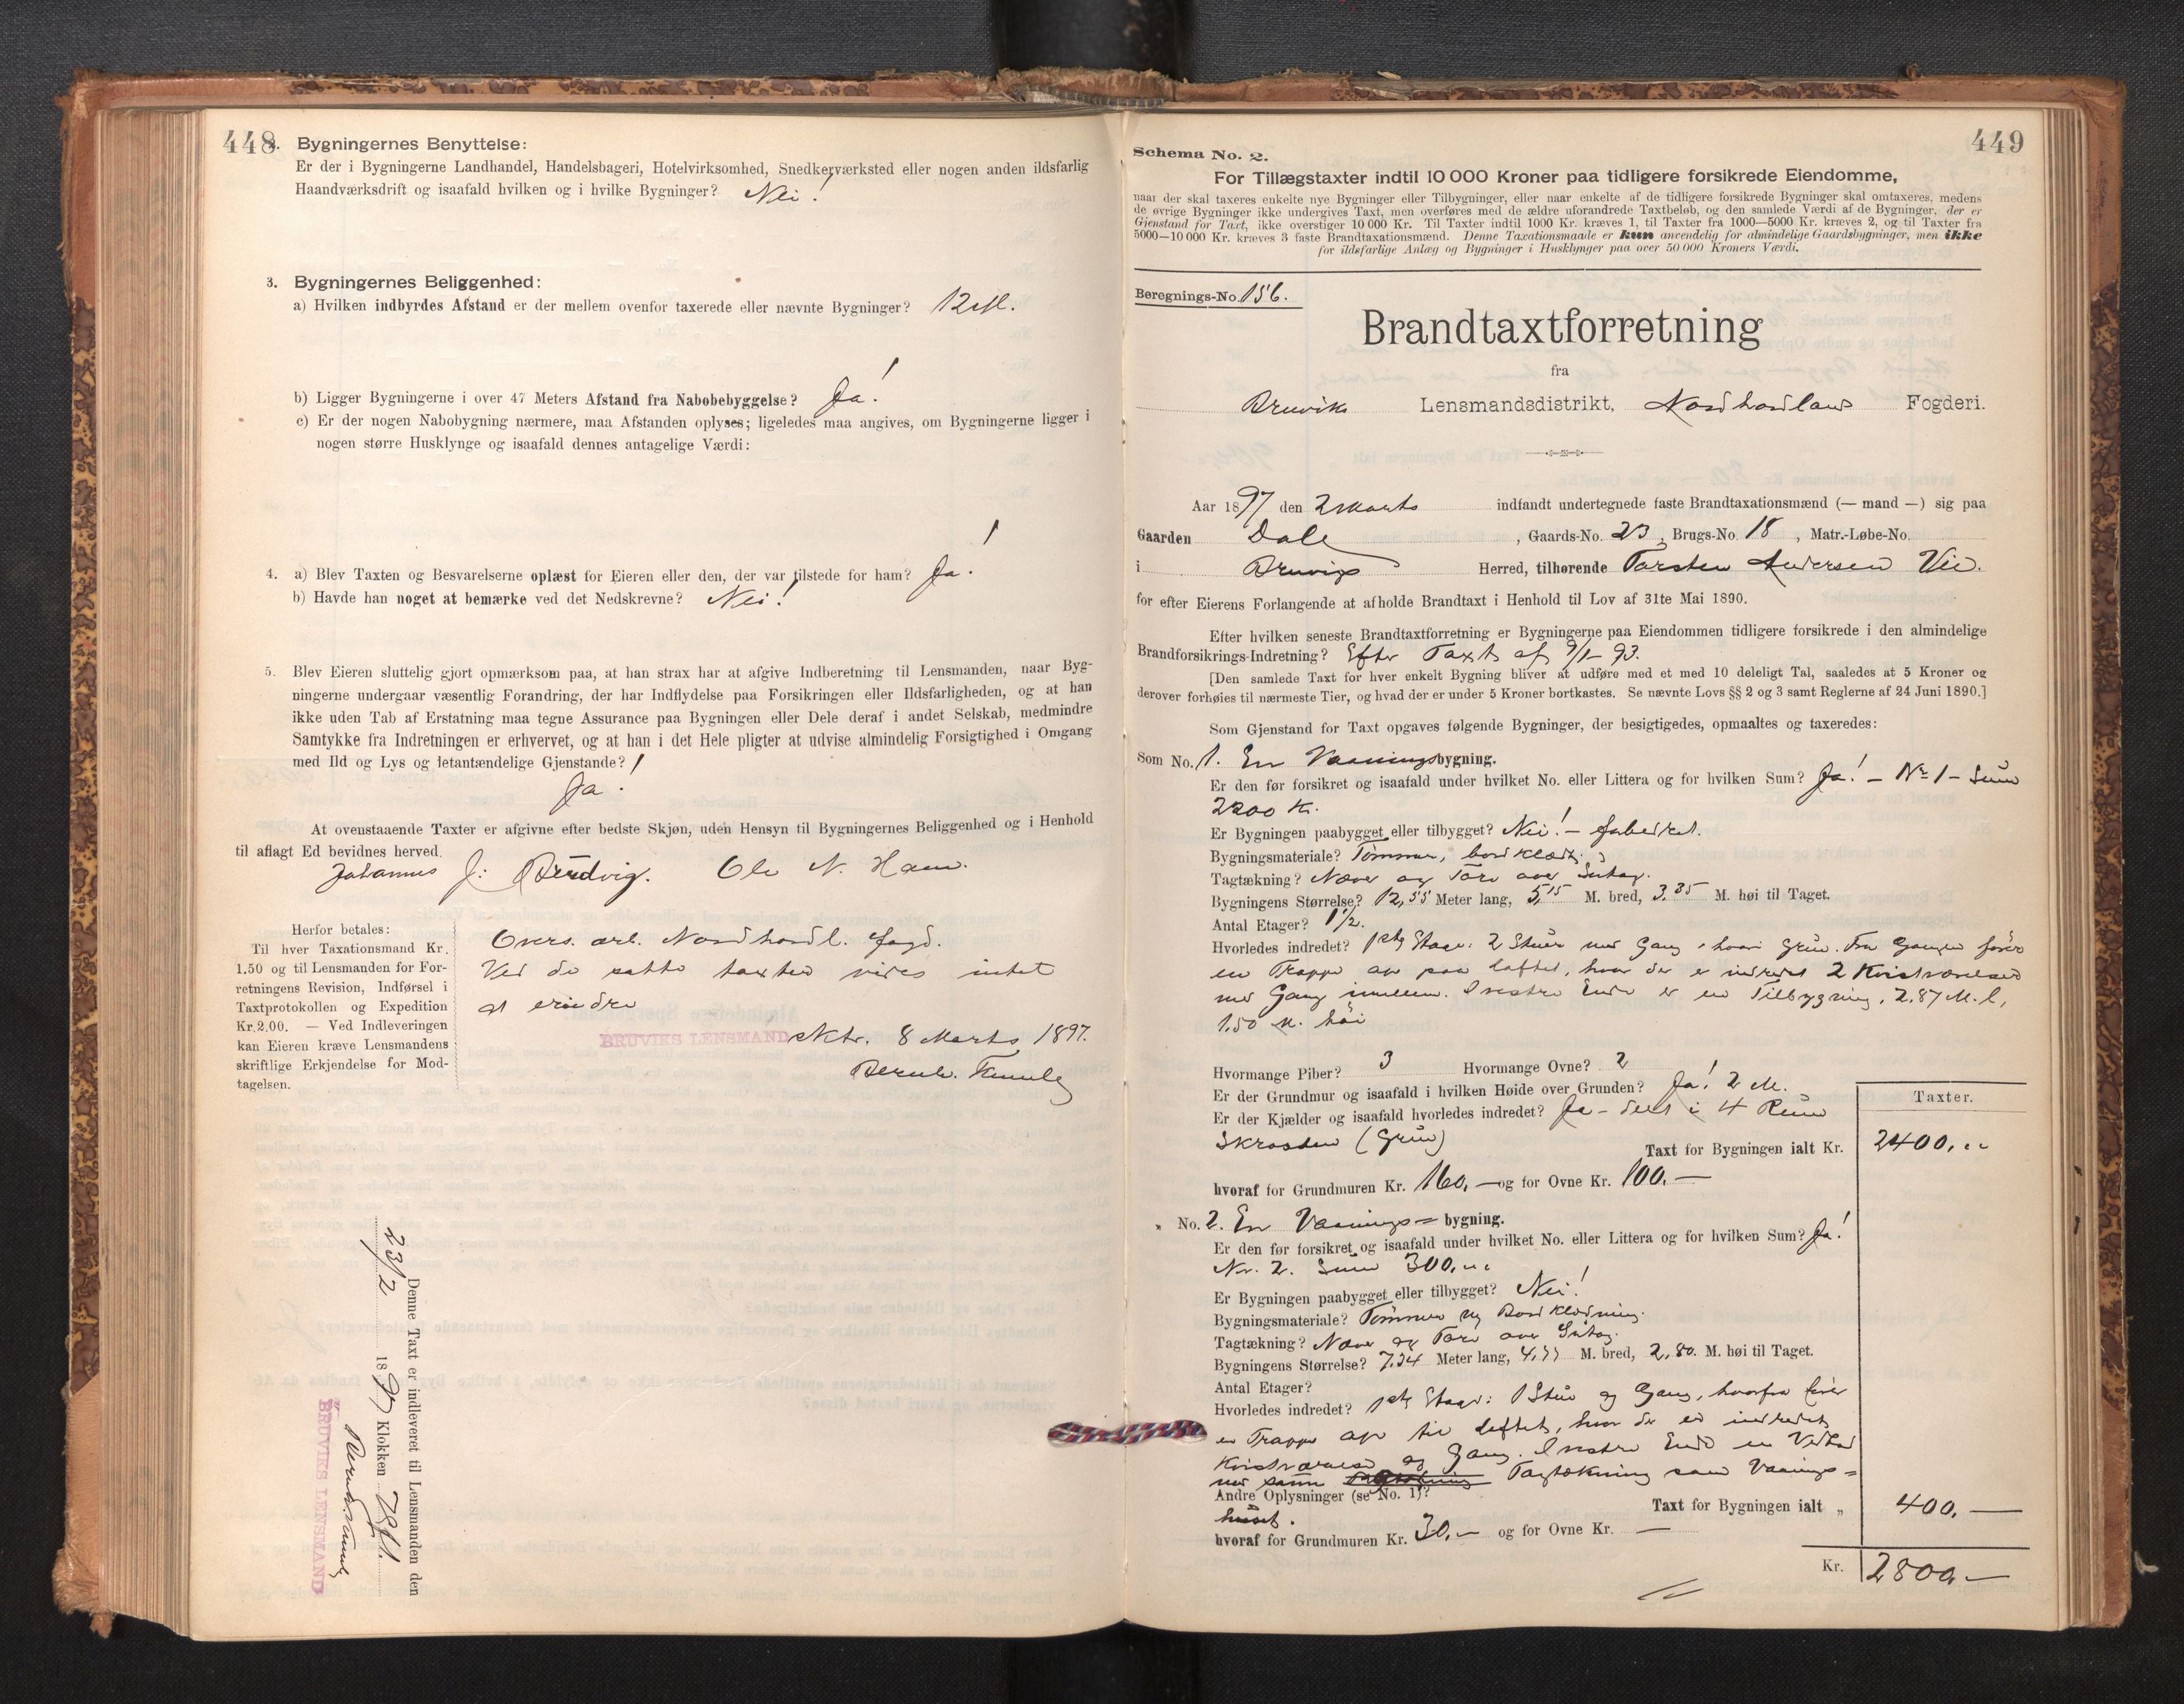 448
2. Bygningernes Benyttelse:
Er der i Bygningerne Landhandel, Handelsbageri, Hotelvirksomhed, Snedkerværksted eller nogen anden ildsfarlig
Haandværksdrift og isaafald hvilken og i hvilke Bygninger? Nei!
3. Bygningernes Beliggenhed:
a) Hvilken indbyrdes Afstand er der mellem ovenfor taxerede eller nævnte Bygninger? 12 M.
b) Ligger Bygningerne i over 47 Meters Afstand fra Nabobebyggelse? Ja!
c) Er der nogen Nabobygning nærmere, maa Afstanden oplyses; ligeledes maa angives, om Bygningerne ligger i
nogen større Husklynge og isaafald dennes antagelige Værdi:
4. a) Blev Taxten og Besvarelserne oplæst for Eieren eller den, der var tilstede for ham? Ja!
b) Havde han noget at bemærke ved det Nedskrevne? Nei!
5. Blev Eieren sluttelig gjort opmærksom paa, at han strax har at afgive Indberetning til Lensmanden, naar Byg-
ningerne undergaar væsentlig Forandring, der har Indflydelse paa Forsikringen eller Ildsfarligheden, og at han
ikke uden Tab af Erstatning maa tegne Assurance paa Bygningen eller Dele deraf i andet Selskab, medmindre
Samtykke fra Indretningen er erhvervet, og at han i det Hele pligter at udvise almindelig Forsigtighed i Omgang
med Ild og Lys og letantændelige Gjenstande?
Ja!
At ovenstaaende Taxter er afgivne efter bedste Skjøn, uden Hensyn til Bygningernes Beliggenhed og i Henhold
til aflagt Ed bevidnes herved.
Johannes J. Ole N.
Herfor betales:
Til hver Taxationsmand Kr.
1.50 og til Lensmanden for For-
retningens Revision, Indførsel i
Taxtprotokollen og Expedition
Kr. 2.00. — Ved Indleveringen
kan Eieren kræve Lensmandens
skriftlige Erkjendelse for Mod-
tagelsen.
Overs. ærb. Nordhordl. Fogd.
Ved de satte taxter vides intet
at erindre
BRUVIKS LENSMAND Ktr. 8 Marts 1897.
Denne Taxt er indleveret til Lensmanden den
23/2 1897 Klokken
BRUVIKS LENSMAND
449
Schema No. 2.
For Tillægstaxter indtil 10 000 Kroner paa tidligere forsikrede Eiendomme,
naar der skal taxeres enkelte nye Bygninger eller Tilbygninger, eller naar enkelte af de tidligere forsikrede Bygninger skal omtaxeres, medens
de øvrige Bygninger ikke undergives Taxt, men overføres med de ældre uforandrede Taxtbeløb, og den samlede Værdi af de Bygninger, der er
Gjenstand for Taxt, ikke overstiger 10 000 Kr. Til Taxter indtil 1000 Kr. kræves 1, til Taxter fra 1000—5000 Kr. kræves 2, og til Taxter fra
5000—10 000 Kr. kræves 3 faste Brandtaxationsmænd. Denne Taxationsmaade er kun anvendelig for almindelige Gaardsbygninger, men ikke
for ildsfarlige Anlæg og Bygninger i Husklynger paa over 50 000 Kroners Værdi.
Beregnings-No. 156.
Brandtaxtforretning
fra
Bruviks Lensmandsdistrikt, Nordhordlans Fogderi.
Aar 1897 den 2 Marts indfandt undertegnede faste Brandtaxationsmænd (— mand —) sig paa
Gaarden Dale, Gaards-No. 23, Brugs-No. 18, Matr.-Løbe-No.
i Bruvigs Herred, tilhørende Torsten Andersen Vie.
for efter Eierens Forlangende at afholde Brandtaxt i Henhold til Lov af 31te Mai 1890.
Efter hvilken seneste Brandtaxtforretning er Bygningerne paa Eiendommen tidligere forsikrede i den almindelige
Brandforsikrings-Indretning? Efter Taxt af 9/1 93.
[Den samlede Taxt for hver enkelt Bygning bliver at udføre med et med 10 deleligt Tal, saaledes at 5 Kroner og
derover forhøies til nærmeste Tier, og hvad der er under 5 Kroner bortkastes. Se nævnte Lovs §§ 2 og 3 samt Reglerne af 24 Juni 1890.]
Som Gjenstand for Taxt opgaves følgende Bygninger, der besigtigedes, opmaaltes og taxeredes:
Som No. 1. En Vaaningsbygning.
Er den før forsikret og isaafald under hvilket No. eller Littera og for hvilken Sum? Ja! – No 1 – Sum
2200 K.
Er Bygningen paabygget eller tilbygget? Nei! –
Bygningsmateriale? Tømmer, bordklædt.
Tagtækning? Næver og Torv over Sutag.
Bygningens Størrelse? 12,55 Meter lang, 5,15 M. bred, 3,85 M. høi til Taget.
Antal Etager? 1 1/2.
Hvorledes indredet? 1ste Etage: 2 Stuer med Gang, hvori Gruve. Fra Gangen fører
en Trappe op paa Loftet, hvor der er indredet 2 Kvistværelser
med Gang imellem. I vestre Ende er en Tilbygning, 2,87 M. l,
1,50 M. høi
Hvormange Piber? 3 Hvormange Ovne? 2
Er der Grundmur og isaafald i hvilken Høide over Grunden? Ja! 2 M.
Er der Kjælder og isaafald hvorledes indredet? Ja – delt i 4 Rum
Skorsten (Gruve)
Taxter.
Taxt for Bygningen ialt Kr. 2400,"
hvoraf for Grundmuren Kr. 160,— og for Ovne Kr. 100,—
" No. 2. En Vaanings= bygning.
Er den før forsikret og isaafald under hvilket No. eller Littera og for hvilken Sum? Ja!
Nr. 2. Sum 300,"
Er Bygningen paabygget eller tilbygget? Nei!
Bygningsmateriale? Tømmer og Bordklædning.
Tagtækning? Næver og Torv over Sutag.
Bygningens Størrelse? 7,34 Meter lang, M. bred, 2,80 M. høi til Taget.
Antal Etager?
Hvorledes indredet? 1ste Etage: 1 Stue og Gang, hvorfra fører
en Trappe op til Loftet, hvor der er indredet
Kvistværelse og Gang. I vestre Ende en
med samme Tagtækning som Vaanings=
Andre Oplysninger (se No. 1)?
huset.
Taxt for Bygningen ialt „ 400,—
hvoraf for Grundmuren Kr. 30,— og for Ovne Kr. —
Kr. 2800,—